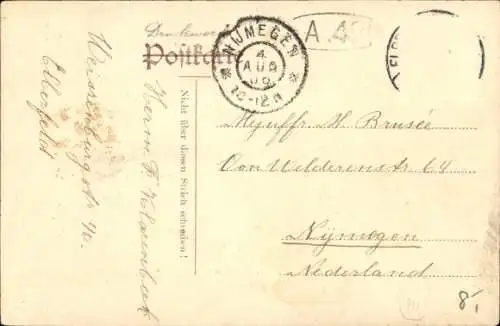 Drucksache
Postkarte
NIJMEGEN
4
AUG
10-12
A. 4
ELBE
Mejuffr. H. Brusée
van Welderenstr 64
Nijmegen
Nederland
Nicht über diesen Strich schreiben!
Herrn F.
Weissenburgstr.
Elberfeld
8,